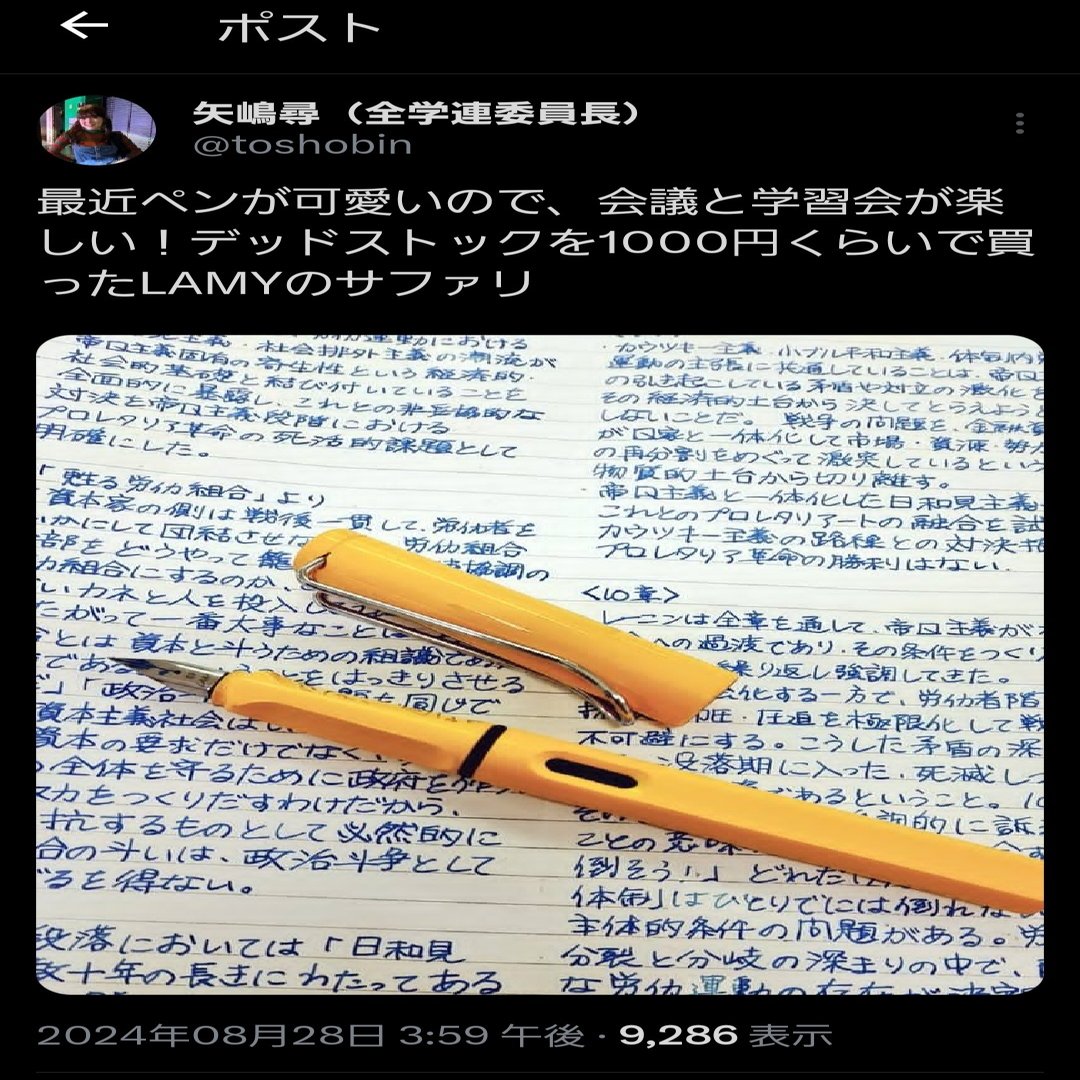 ポスト
矢嶋尋（全学連委員長）
@toshobin
最近ペンが可愛いので、会議と学習会が楽
しい！デッドストックを1000円くらいで買
ったLAMYのサファリ
帝囗主義固有の寄生性という経済的・
社会的基礎と結び付いていることを
全面的に暴露し、これとの非妥協的な
対決を帝囗主義段階における
プロレタリア革命の死活的課題として
明確にした。
「甦る労仂組合」より
資本家の側は戦後一貫して、労仂者を
いかにして団結させな
労仂組合
部をどうやって
協調の
カ組合にするのか
いカネと人を投入し
たがって一番大事なことは
とは資本と斗うための組織であ
であ
をはっきりさせる
」「政治
を同じで
資本主義社会は
資本の要求だけでなく、
全体を守るために政府を
力をつくりだすわけだから、
抗するものとして必然的に
合の斗いは、政治斗争として
ざるを得ない。
段落においては「日和見
十年の長きにわたってある
カウツキー主義、小ブル平和主義、体制内
運動の主張に共通していることは、帝囗
の引き起こしている矛盾や対立の激化を
その経済的土台から決してとらえよう
しないことだ。戦争の問題を、金融資
が囗家と一体化して市場・資源・勢力
の再分割をめぐって激突しているという
物質的土台から切り離す。
帝囗主義と一体化した日和見主義
これとのプロレタリアートの融合を試
カウツキー主義の路線との対決抜
プロレタリア革命の勝利はない。
<10章>
レーニンは全章を通して、帝囗主義が
への過渡であり、その条件をつくり
繰り返し強調してきた。
化する一方で、労仂者階
圧迫を極限化して戦
不可避にする。こうした矛盾の深
没落期に入った、死滅しつ
であるということ。
調的に訴
ことの意味
倒そう！」どれだ
体制」はひとりでには倒れな
主体的条件の問題がある。労
分裂と分岐の深まりの中で、
な労仂運動の存在が決定
2024年08月28日 3:59 午後 · 9,286 表示